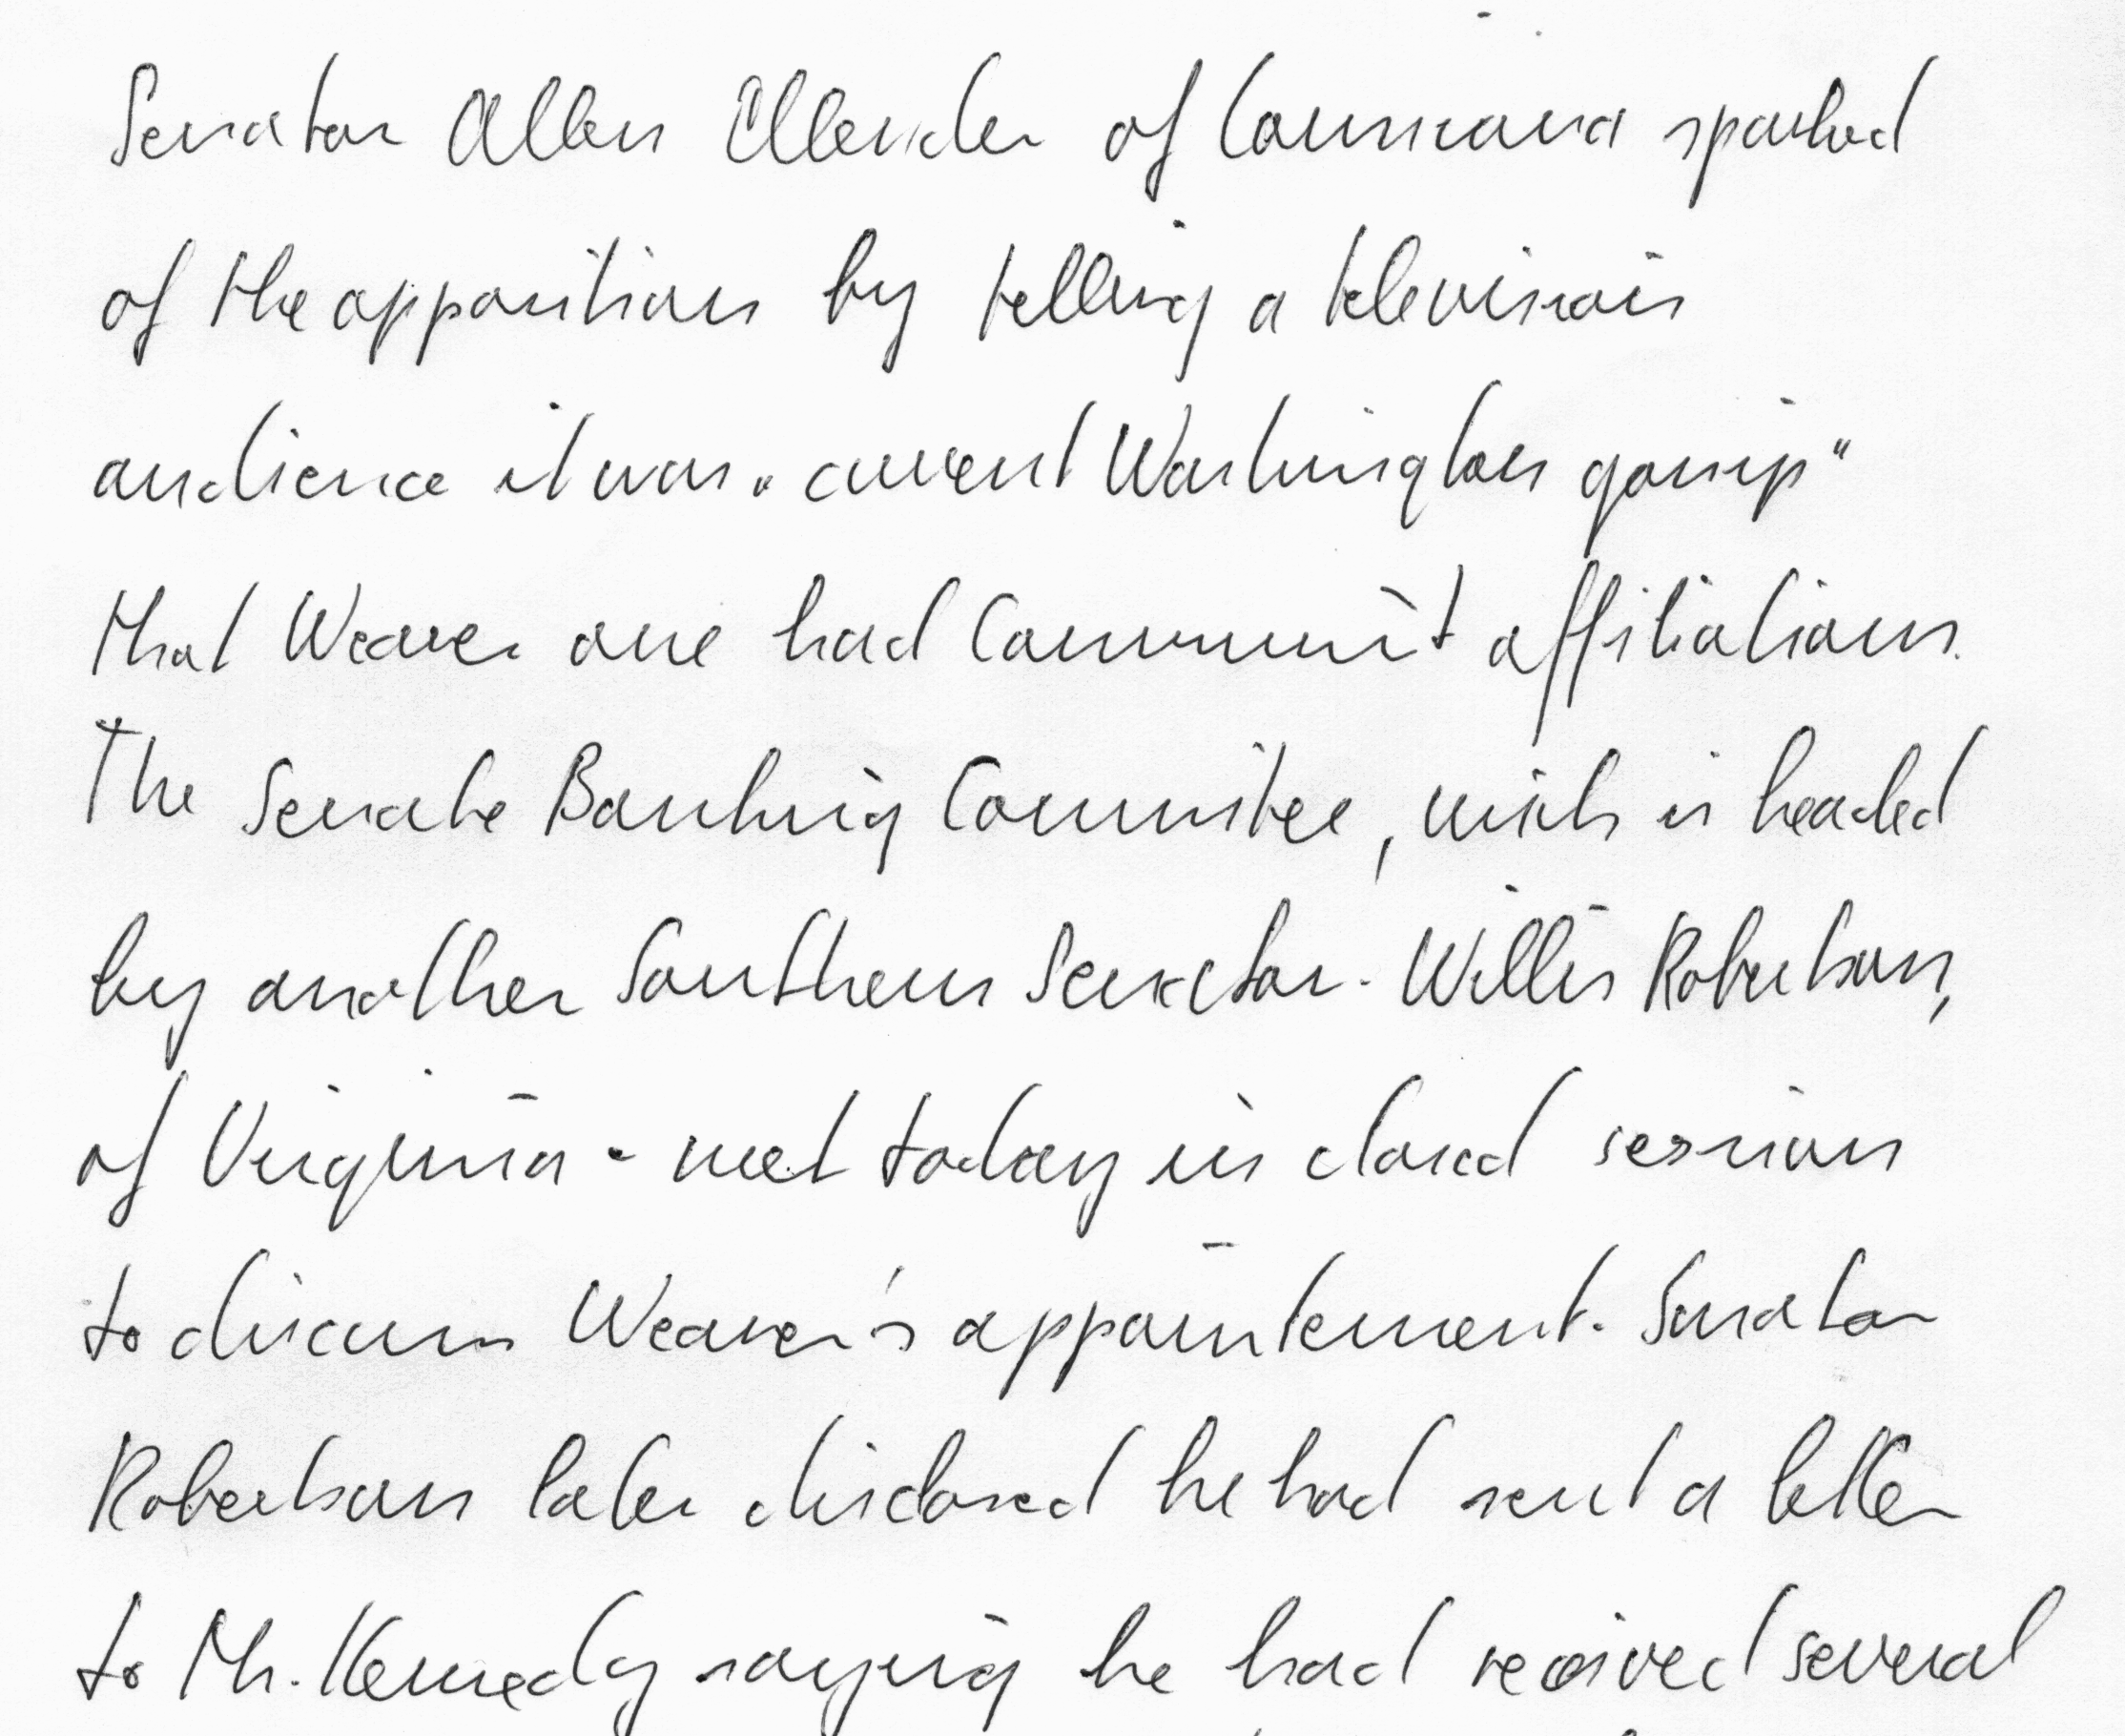 Senator Allen Ellender of Louisiana sparked
of the opposition by telling a television
audience it was "current Washington gossip"
that Weaver one had Communist affiliations.
The Senate Banking Commitee, wich is headed
by another Southern Senator - Willis Robertson,
of Virginia - met today in closed session
to discuss Weaver's appointement. Senator
Robertson later disclosed he had sent a letter
to Mr. Kennedy saying he had received several